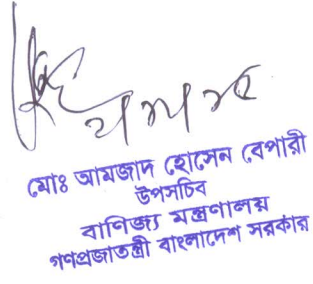 মোঃ আমজাদ হোসেন বেপারী
উপসচিব
বাণিজ্য মন্ত্রণালয়
গণপ্রজাতন্ত্রী বাংলাদেশ সরকার